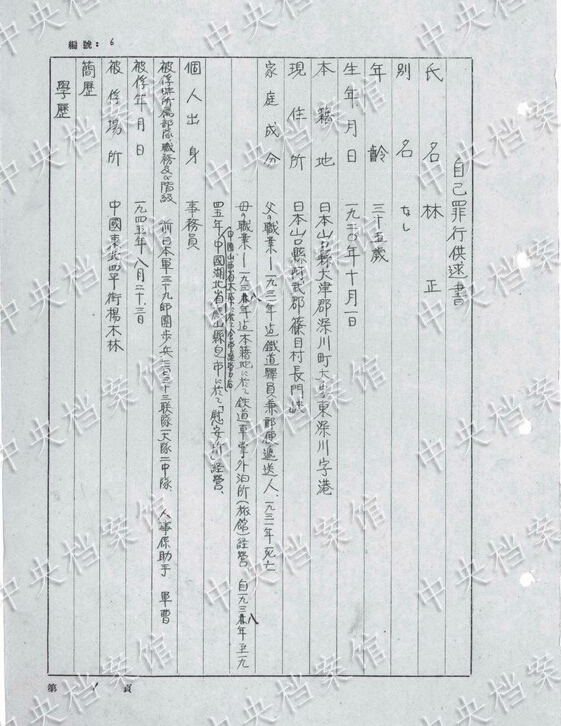 編號：6
自己罪行供述書
氏名 林正
別名 なし
年齢 三十五歳
生年月日 一九二〇年十月一日
本籍地 日本山口縣大津郡深川町大字東深川字港
現住所 日本山口縣阿武郡篠目村長門峡
家庭成分 父の職業—一九三一年迄鐵道驛員兼郵便遞送人、一九三一年死亡
母の職業—一九三八年迄本籍地に於て鉄道乗務員外泊所(旅館)経營 自一九三八年至一九
四五年、中國湖北省當陽縣 市に於て「慰安所」経營、
個人出身 事務員
被俘时所属部隊職務及び階級 前日本軍三十九師團歩兵二百三十三联隊一大隊二中隊、人事係助手 軍曹
被俘年月日 一九四五年八月二十三日
被俘場所 中國東北四平街楊木林
簡歴
學歷
第 1 頁
中央档案馆